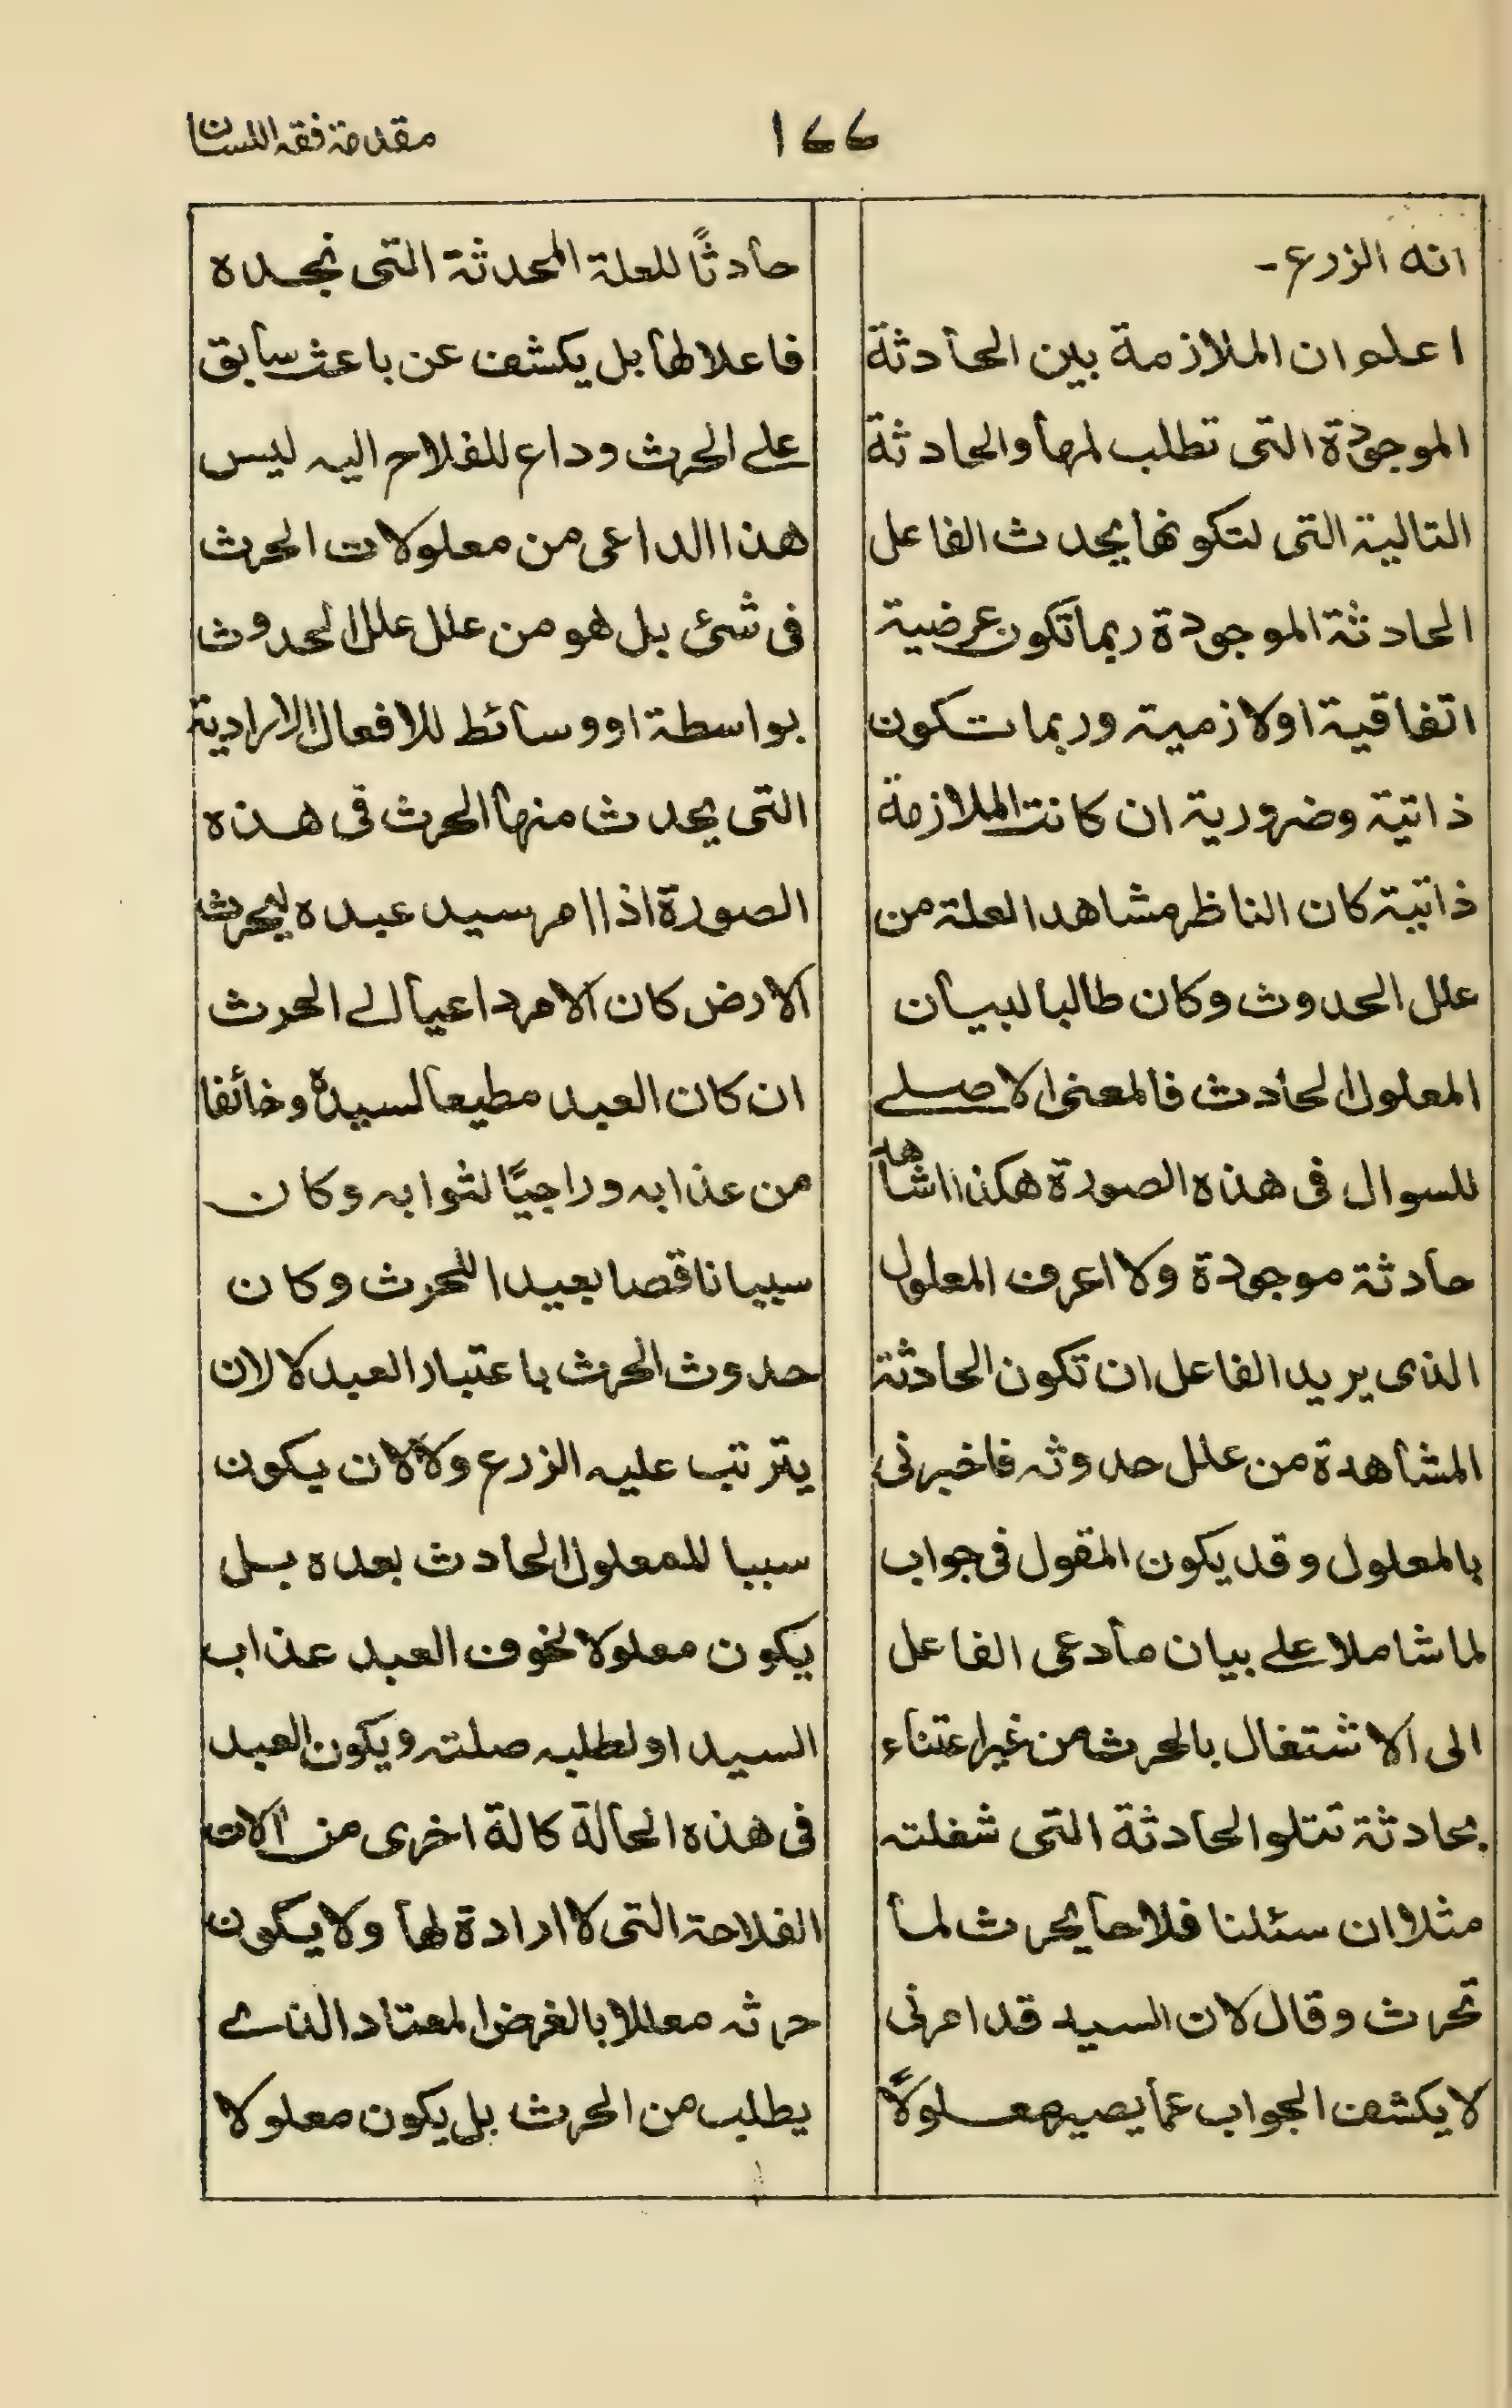 مقدمة فقه اللسان
١٧٧
انه الزرع۔
اعلم ان الملازمة بين الحادثة
الموجودة التى تطلب لمها والحادثة
التالية التى لتكونها يحدث الفاعل
الحادثة الموجودة ربما تكون عرضية
اتفاقية اولازمية وربما تكون
ذاتية وضرورية ان كانت الملازمة
ذاتية كان الناظر مشاهدا لعلة من
علل الحدوث وكان طالبا لبيان
المعلول الحادث فالمعنى الاصلے
للسوال فى هذه الصورة هكذا اشاهد
حادثة موجودة ولا اعرف المعلول
الذى يريد الفاعل ان تكون الحادثة
المشاهدة من علل حدوثه فاخبرنى
بالمعلول وقد يكون المقول فى جواب
لما شاملا علے بيان ما دعى الفاعل
الى الاشتغال بالحرث من غير اعتناء
بحادثة تتلو الحادثة التى شغلته
مثلا ان سئلنا فلاحا يحرث لما
تحرث وقال لان السيد قد امرنى
لا يكشف الجواب عما يصير معلولًا
حادثًا للعلة المحدثة التى نجده
فاعلا لها بل يكشف عن باعث سابق
علے الحرث وداع للفلاح اليه ليس
هذا الداعى من معلولات الحرث
فى شئ بل هو من علل علل الحدوث
بواسطة او وسائط للافعال الارادية
التى يحدث منها الحرث فى هذه
الصورة اذا امر سيد عبده ليحرث
الارض كان الامر داعيا الے الحرث
ان كان العبد مطيعا لسيده وخائفا
من عذابه وراجيًا لثوابه وكان
سببا ناقصا بعيدا للحرث وكان
حدوث الحرث باعتبار العبد لا لان
يترتب عليه الزرع ولا لان يكون
سببا للمعلول الحادث بعده بل
يكون معلولا لخوف العبد عذاب
السيد او لطلبه صلته ويكون العبد
فى هذه الحالة كالة اخرى من آلات
الفلاحة التى لا ارادة لها ولا يكون
حرثه معللا بالغرض المعتاد الذے
يطلب من الحرث بل يكون معلولا